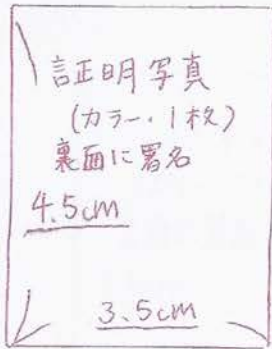 証明写真
(カラー・1枚)
裏面に署名
4.5cm
3.5cm